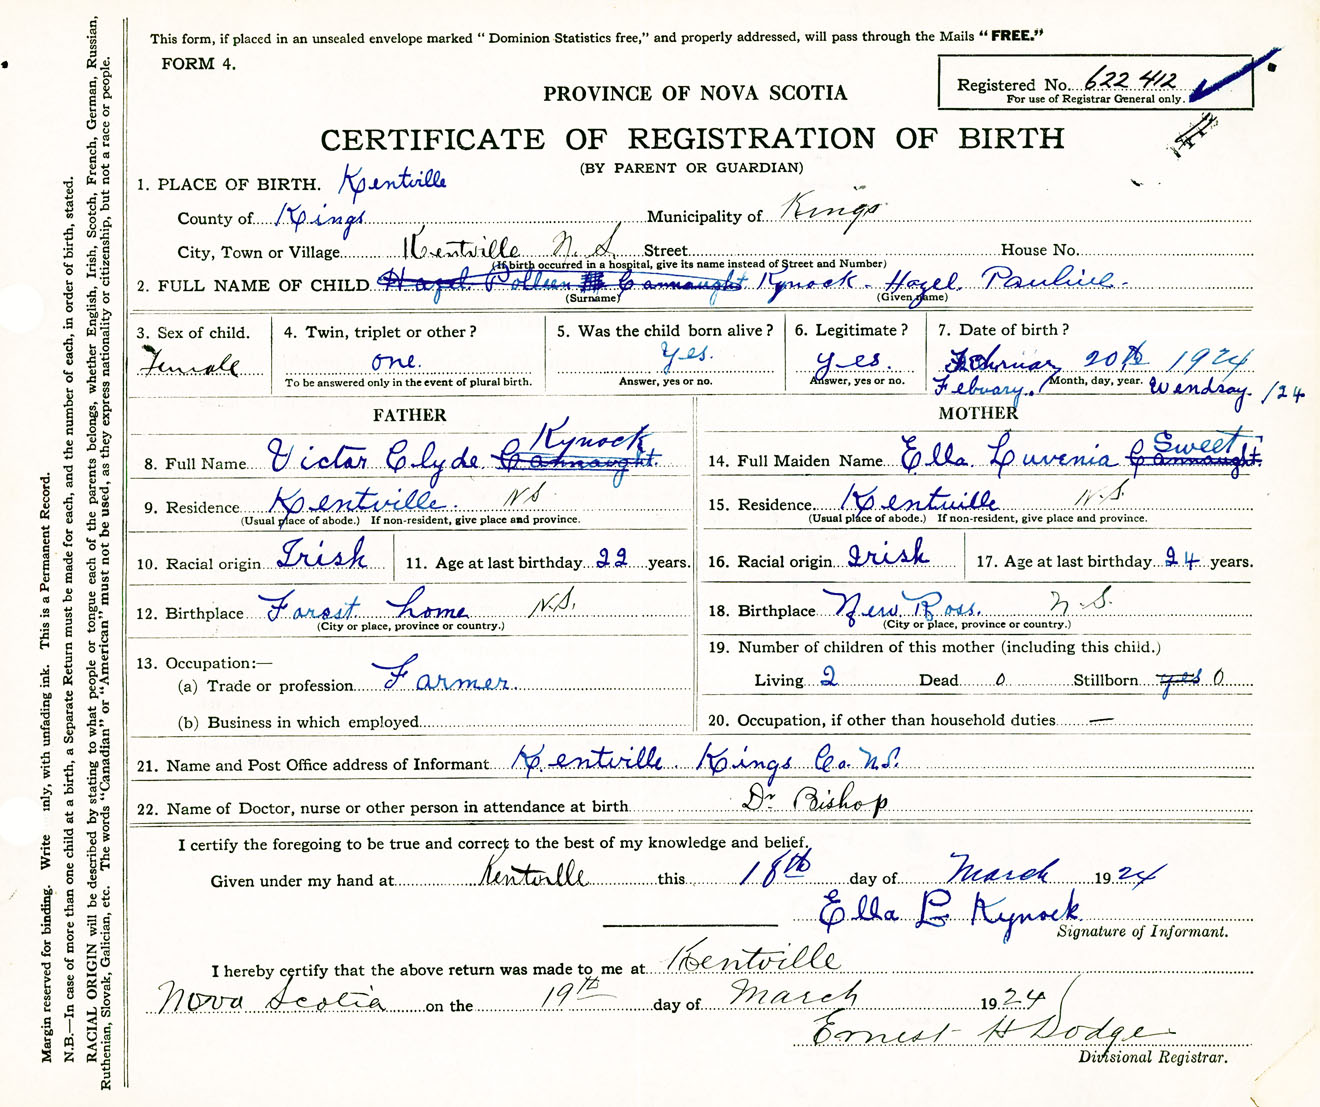 This form, if placed in an unsealed envelope marked “ Dominion Statistics free,” and properly addressed, will pass through the Mails “ FREE.”
FORM 4.
Registered No. 622 412
For use of Registrar General only.
PROVINCE OF NOVA SCOTIA
CERTIFICATE OF REGISTRATION OF BIRTH
(BY PARENT OR GUARDIAN)
1. PLACE OF BIRTH. Kentville
County of Kings Municipality of Kings
City, Town or Village Kentville N. S. Street House No.
(If birth occurred in a hospital, give its name instead of Street and Number)
2. FULL NAME OF CHILD Hazel Polleen Cannaught Kynock - Hazel Pauline -
(Surname) (Given name)
3. Sex of child. 4. Twin, triplet or other ? 5. Was the child born alive ? 6. Legitimate ? 7. Date of birth ?
Female one. yes. yes. February 20th 1924
To be answered only in the event of plural birth. Answer, yes or no. Answer, yes or no. Month, day, year.
Febuary. Wendsay. /24
FATHER MOTHER
Kynock Sweet
8. Full Name Victor Clyde Cannaught. 14. Full Maiden Name Ella Luvenia Cannaught.
9. Residence Kentville. N.S 15. Residence Kentville N.S.
(Usual place of abode.) If non-resident, give place and province. (Usual place of abode.) If non-resident, give place and province.
10. Racial origin Irish 11. Age at last birthday 22 years. 16. Racial origin Irish 17. Age at last birthday 24 years.
12. Birthplace Forest home N.S. 18. Birthplace New Ross. N.S.
(City or place, province or country.) (City or place, province or country.)
13. Occupation:— 19. Number of children of this mother (including this child.)
(a) Trade or profession Farmer. Living 2 Dead 0 Stillborn yes 0
(b) Business in which employed 20. Occupation, if other than household duties —
21. Name and Post Office address of Informant Kentville. Kings Co. N.S.
22. Name of Doctor, nurse or other person in attendance at birth Dr Bishop
I certify the foregoing to be true and correct to the best of my knowledge and belief.
Given under my hand at Kentville this 18th day of March 1924
Ella L Kynock
Signature of Informant.
I hereby certify that the above return was made to me at Kentville
Nova Scotia on the 19th day of March 1924
Ernest H Dodge
Divisional Registrar.
Margin reserved for binding. Write nly, with unfading ink. This is a Permanent Record.
N.B.—In case of more than one child at a birth, a Separate Return must be made for each, and the number of each, in order of birth, stated.
RACIAL ORIGIN will be described by stating to what people or tongue each of the parents belongs, whether English, Irish, Scotch, French, German, Russian,
Ruthenian, Slovak, Galician, etc. The words “Canadian” or “American” must not be used, as they express nationality or citizenship, but not a race or people.